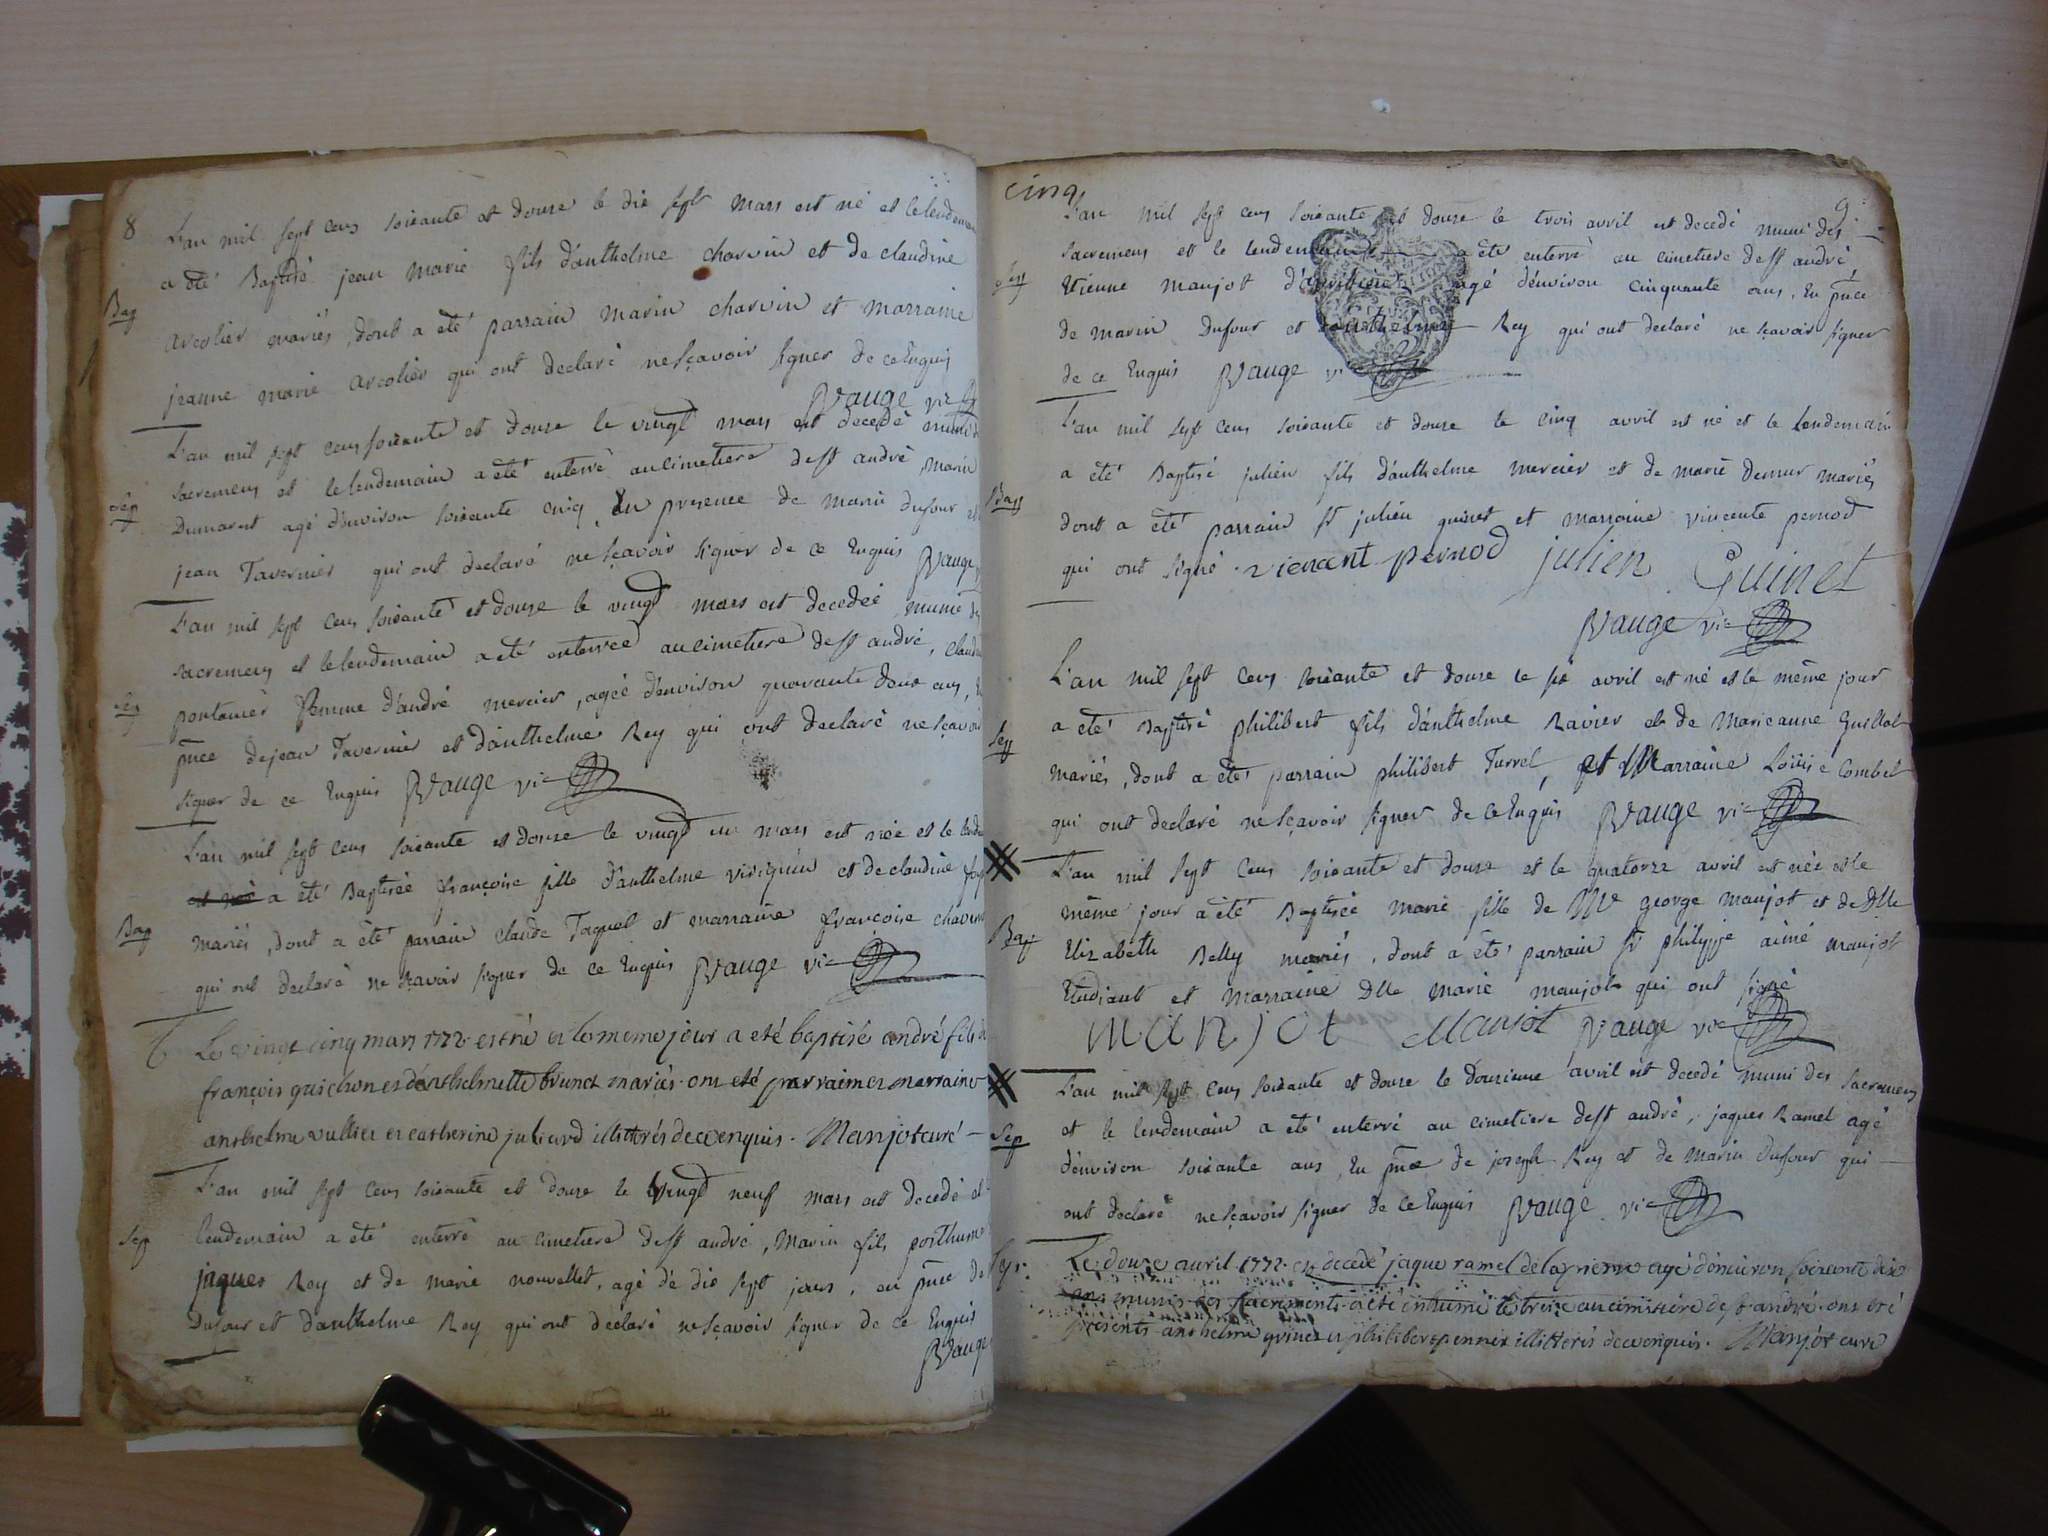 8
L'an mil sept cens soixante et douze le dix sept mars est né et le lendemain
a été Baptisé jean marie fils d'anthelme charvin et de claudine
Bap
arcolier mariés, dont a été parrain marin charvin et marraine
jeanne marie arcolier qui ont declaré ne sçavoir signer de ce Enquis
Vauge vic
L'an mil sept cens soixante et douze le vingt mars est decedé muni
sacremens et le lendemain a été enterré au cimetiere de st andré, marin
Sep
Dumarest agé d'environ soixante cinq, En presence de marin dufour et
jean Tavernier qui ont declaré ne sçavoir signer de ce Enquis Vauge
L'an mil sept cens soixante et douze le vingt mars est decedée munie
sacremens et le lendemain a été enterrée au cimetiere de st andré,
Sep
pontanier femme d'andré mercier, agée d'environ quarante deux ans,
pnce de jean Tavernier et d'anthelme Rey qui ont declaré ne sçavoir
signer de ce Enquis Vauge vic
L'an mil sept cens soixante et douze le vingt un mars est née et le
est née a été Baptisée françoise fille d'anthelme et de claudine
Bap
mariés, dont a été parrain claude Taquet et marraine françoise
qui ont declaré ne sçavoir signer de ce Enquis Vauge vic
Le vingt cinq mars 1772 est né et le meme jour a eté baptisé andré fils de
françois guichon et d'anthelmette brunet mariés. ont eté parrain et marraine
anthelme vullier et catherine juliard illitterés de ce enquis. Manjot curé
L'an mil sept cens soixante et douze le vingt neuf mars est decedé et
Sep
lendemain a été enterré au cimetiere de st andré, Marin fils posthume
jaques Rey et de marie nouvellet, agé de dix sept jours, en pnce de
Dufour et d'anthelme Rey qui ont declaré ne sçavoir signer de ce Enquis
Vauge
cinq
9
L'an mil sept cens soixante et douze le trois avril est decedé muni des
sacremens et le lendemain a été enterré au cimetiere de st andré
Sep
Etienne manjot agé d'environ cinquante ans, En pnce
de marin Dufour et d'anthelme Rey qui ont declaré ne sçavoir signer
de ce Enquis Vauge vic
L'an mil sept cens soixante et douze le cinq avril est né et le lendemain
a été Baptisé julien fils d'anthelme mercier et de marie demur mariés
Bap
dont a été parrain sr julien guinet et marraine vincente pernod
qui ont signé. viencent pernod julien Guinet
Vauge vic
L'an mil sept cens soixante et douze le six avril est né et le même jour
a été Baptisé philibert fils d'anthelme Ravier et de Marieanne Guillot
Sep
mariés, dont a été parrain philibert Turrel, et Marraine Loüise Combet
qui ont declaré ne sçavoir signer de ce Enquis Vauge vic
L'an mil sept cens soixante et douze et le quatorze avril est née et le
même jour a été Baptisée marie fille de Mre george manjot et de Dlle
Bap
Elizabeth Belly mariés, dont a été parrain sr philippe aimé manjot
Etudiant et Marraine Dlle marie manjot qui ont signé
manjot Manjot Vauge vic
L'an mil sept cens soixante et douze le douzieme avril est decedé muni des sacremens
et le lendemain a été enterré au cimetiere de st andré, jaques Ramel agé
Sep
d'environ soixante ans, En pnce de joseph Rey et de Marin Dufour qui
ont declaré ne sçavoir signer de ce Enquis Vauge vic
Sep.
Le douze avril 1772. est decedé jaque ramel agé d'environ soixante dix
ans munis des sacrements a eté inhumé le treize au cimitiére de st andré. ont eté
présents anthelme guinet et philibert pernet illitterés de ce enquis. Manjot curé